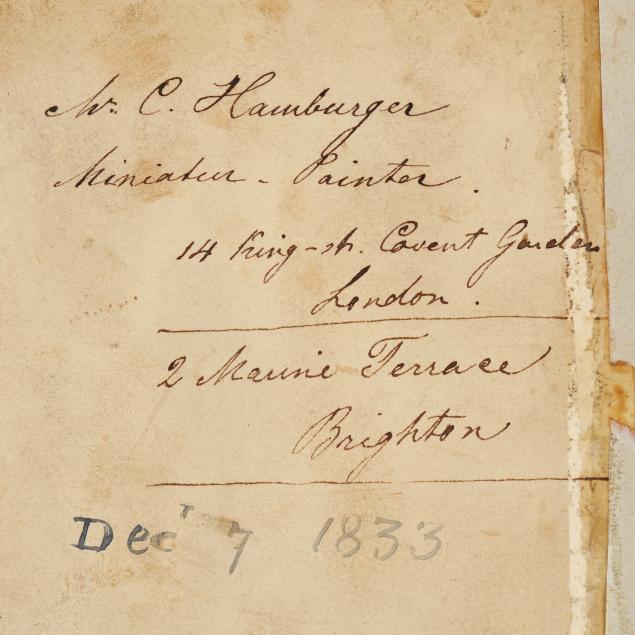 Mr. C. Hamburger
Miniatur - Painter.
14 King-st. Covent Garden
London.
2 Marine Terrace
Brighton
Decr 7 1833